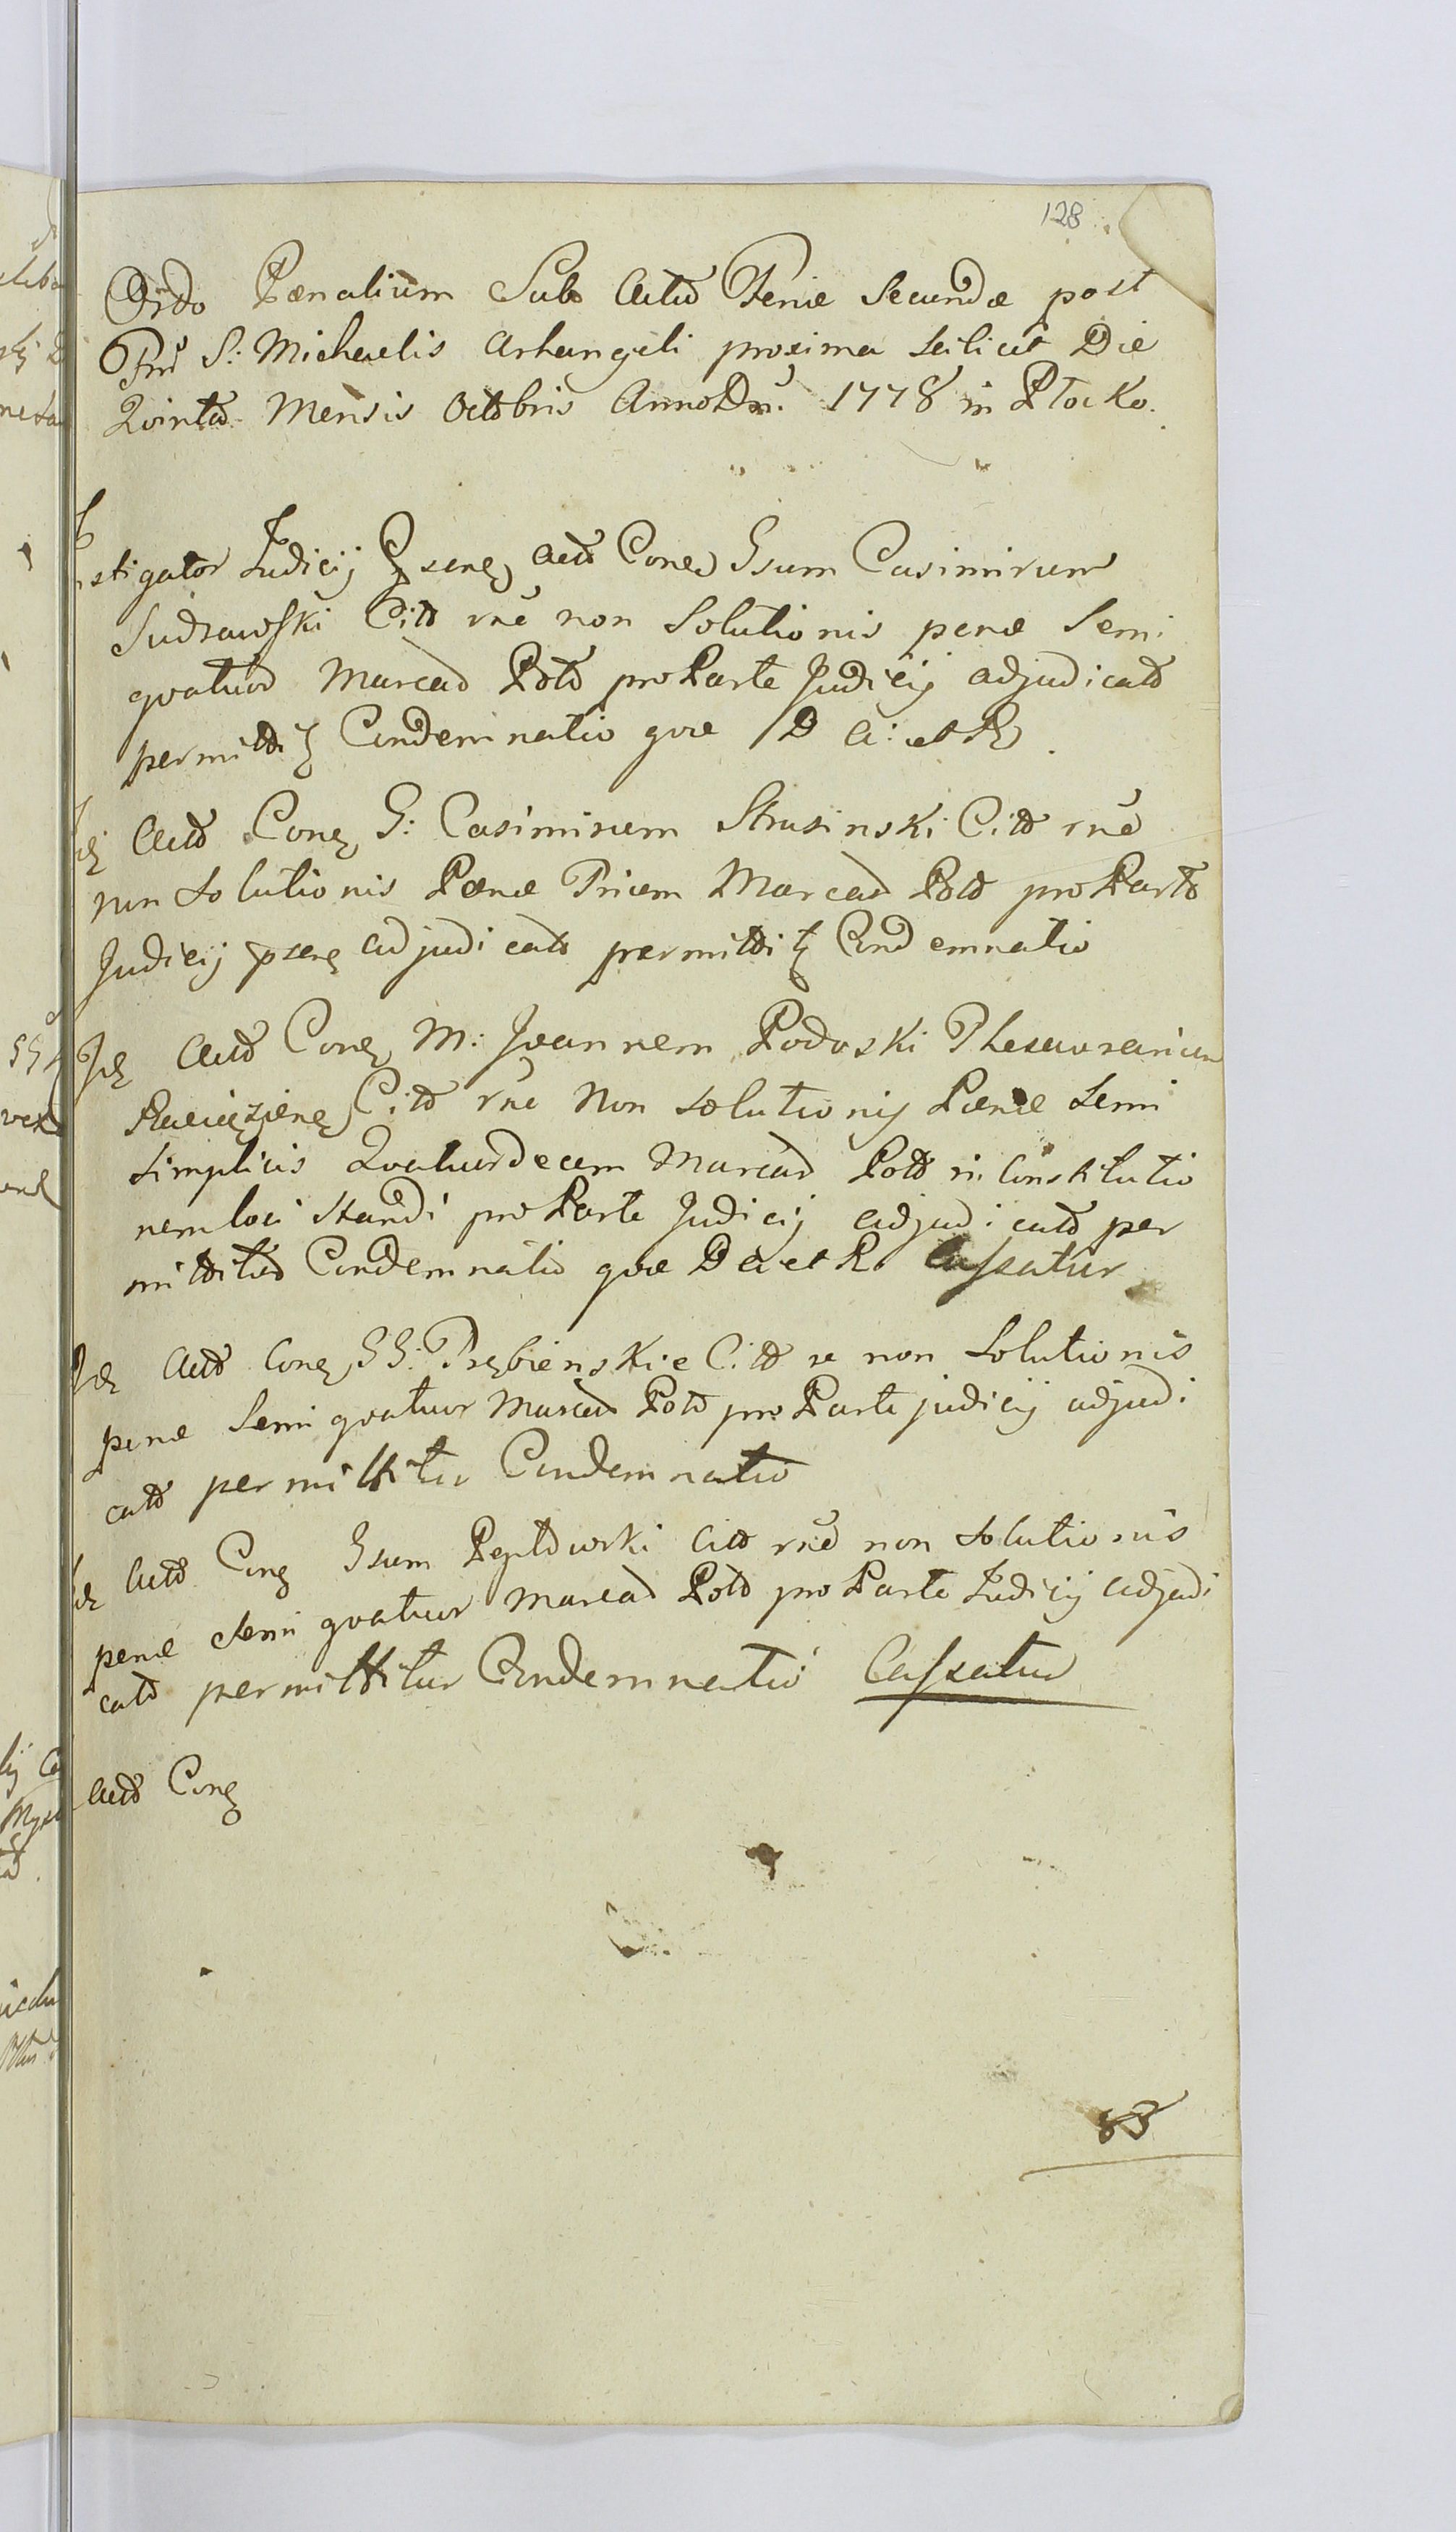 128
Ordo Pœnalium Sub Actu Feriæ Secundæ post
S: Michaelis Arhangeli proxima scilicet Die
Qvinta Mensis Octobris Anno Dni. 1778 in Płocko.
Instigator Judicij Actor Cone Gsum Casimirum
Sudrawski Citt rne non Solutionis penæ Semi
qvatuor Marcar Pott pro Parte Judicij adjudicatt
permittit Condemnatio qvæ D A: et R.
Actt Cone G: Casimirum Strusinski Citt rne
non Solutionis Pœnæ Trium Marcar Pott pro Parte
Judicij psene adjudicatt permittit Condemnatio
Actt Cone M: Joannem Podoski Thesaurarium
Raciąziene Citt rne Non Solutionis Pœnæ Semi
Simplicis Qvatuordecem Marcar Pott in Constitutio
nem loci Standi pro Parte Judicij adjudicatt per
mittitur Condemnatio qvæ D A et R Cassatur
Actt Cone GG: Trębienskie Citt re non Solutionis
penæ Semi qvatuor Marcar Pott pro Parte judicij adjudi
catt permittitur Condemnatio
Actt Cone Gsum Citt rne non Solutionis
penæ Semi qvatuor Marcar Pott pro Parte Judicij adjudi
catt permittitur Condemnatio Cassatur
Actt Cone
83